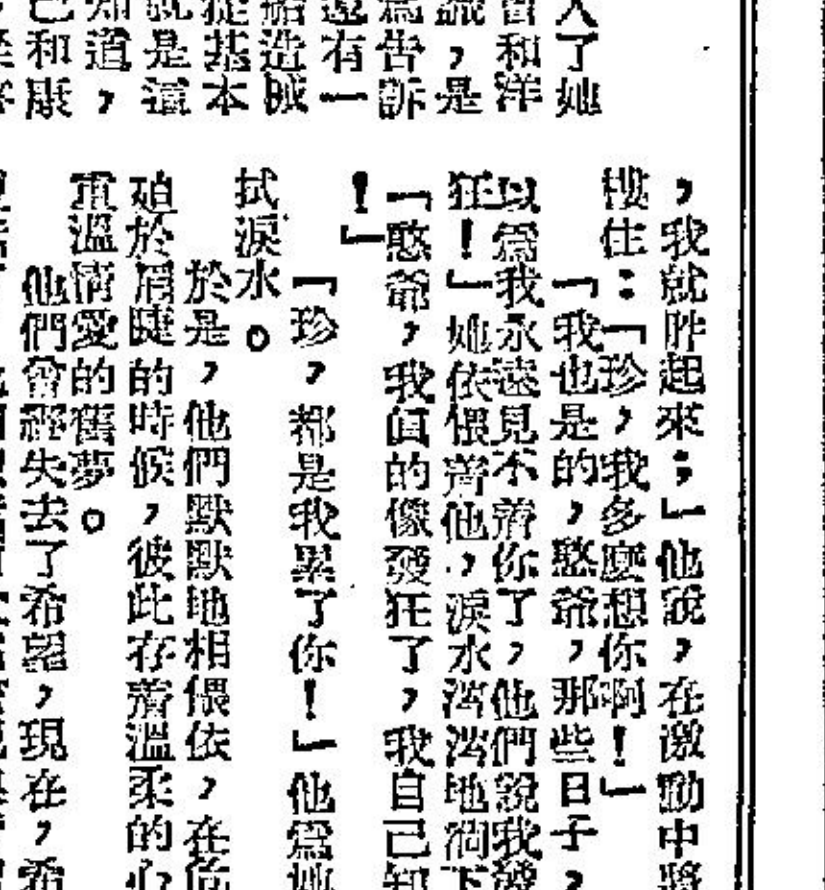 入了她
會和洋
識，是
爲告訴
還有一
船造械
從基本
就是這
知道，
已和康
，我就咋起來；」他說，在激動中將
摟住：「珍，我多麼想你啊！」
「我也是的，憨爺，那些日子，
以爲我永遠見不着你了，他們說我發
狂！」她依偎着他，淚水滂滂地淌下
「憨爺，我眞的像發狂了，我自己知
！」
「珍，都是我累了你！」他爲她
拭淚水。
於是，他們默默地相偎依，在危
迫於眉睫的時候，彼此存着溫柔的心
重溫情愛的舊夢。
他們曾經失去了希望，現在，希